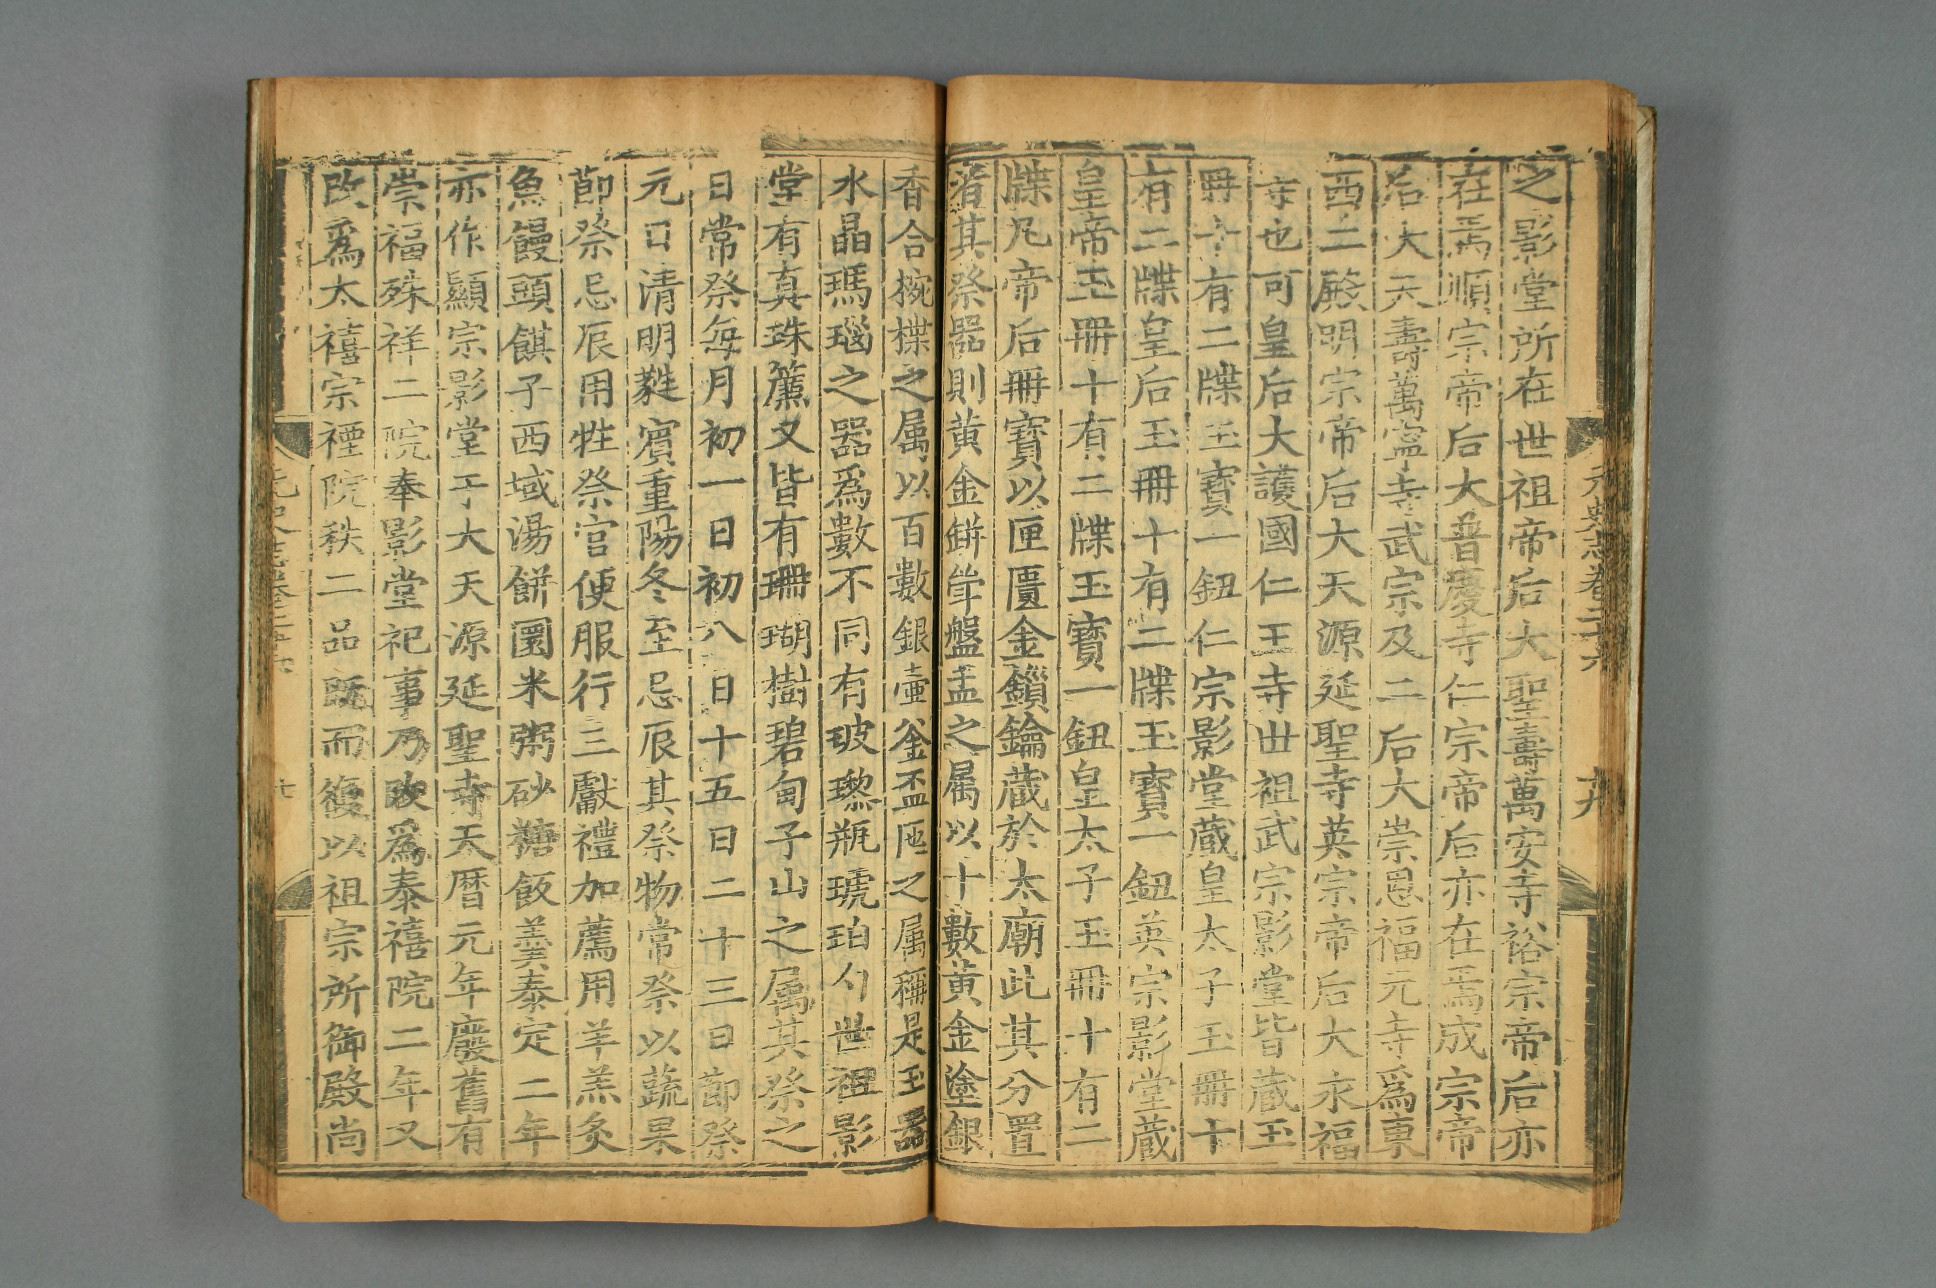 元史志卷二十六
十九
之影堂所在世祖帝后大聖壽萬安寺裕宗帝后亦
在焉順宗帝后大普慶寺仁宗帝后亦在焉成宗帝
后大天壽萬寧寺武宗及二后大崇恩福元寺爲東
西二殿明宗帝后大天源延聖寺英宗帝后大永福
寺也可皇后大護國仁王寺世祖武宗影堂皆藏玉
冊十有二牒玉寶一鈕仁宗影堂藏皇太子玉冊十
有二牒皇后玉冊十有二牒玉寶一鈕英宗影堂藏
皇帝玉冊十有二牒玉寶一鈕皇太子玉冊十有二
牒凡帝后冊寶以匣匱金鎖鑰藏於太廟此其分置
者其祭器則黃金缾斝盤盂之屬以十數黃金塗銀
香合椀楪之屬以百數銀壺釡盃匜之屬稱是玉器
水晶瑪瑙之器爲數不同有玻瓈瓶琥珀勺世祖影
堂有真珠簾又皆有珊瑚樹碧甸子山之屬其祭之
日常祭每月初一日初八日十五日二十三日節祭
元日清明蕤賓重陽冬至忌辰其祭物常祭以蔬果
節祭忌辰用牲祭官便服行三獻禮加薦用羊羔炙
魚饅頭䭆子西域湯餅圜米粥砂糖飯羹泰定二年
亦作顯宗影堂于大天源延聖寺天曆元年廢舊有
崇福殊祥二院奉影堂祀事乃改爲泰禧院二年又
改爲太禧宗禋院秩二品既而復以祖宗所御殿尚
元史志卷二十六